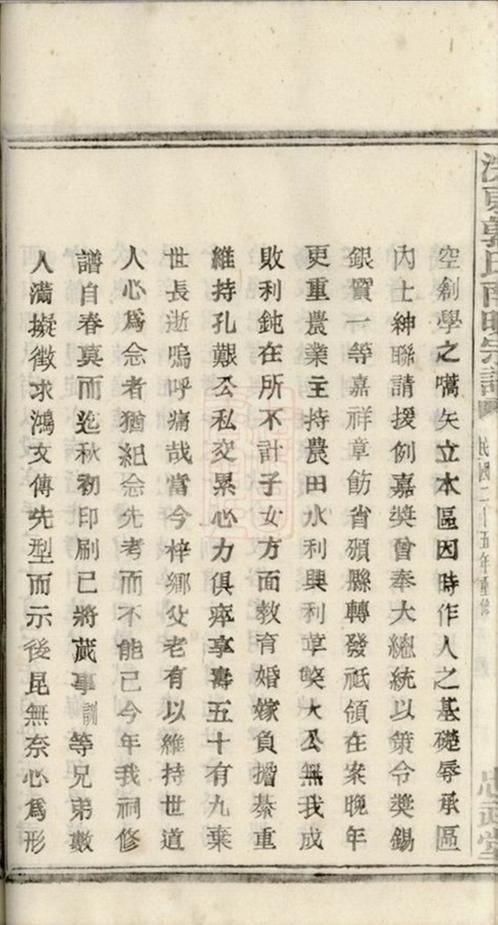 空創學之嚆矢立本區因時作人之基礎辱承區
內士紳聯請援例嘉獎曾奉大總統以策令獎錫
銀質一等嘉祥章飭省頒縣轉發祗領在案晚年
更重農業主持農田水利興利革弊大公無我成
敗利鈍在所不計子女方面教育婚嫁負擔綦重
維持孔艱公私交累心力俱瘁享壽五十有九棄
世長逝嗚呼痛哉當今梓鄉父老有以維持世道
人心爲念者猶紀念先考而不能已今年我祠修
譜自春莫而迄秋初印刷已將蕆事訓等兄弟數
人滿擬徵求鴻文傳先型而示後昆無奈心爲形
郭氏 宗譜
民國二十五年重修
忠武堂